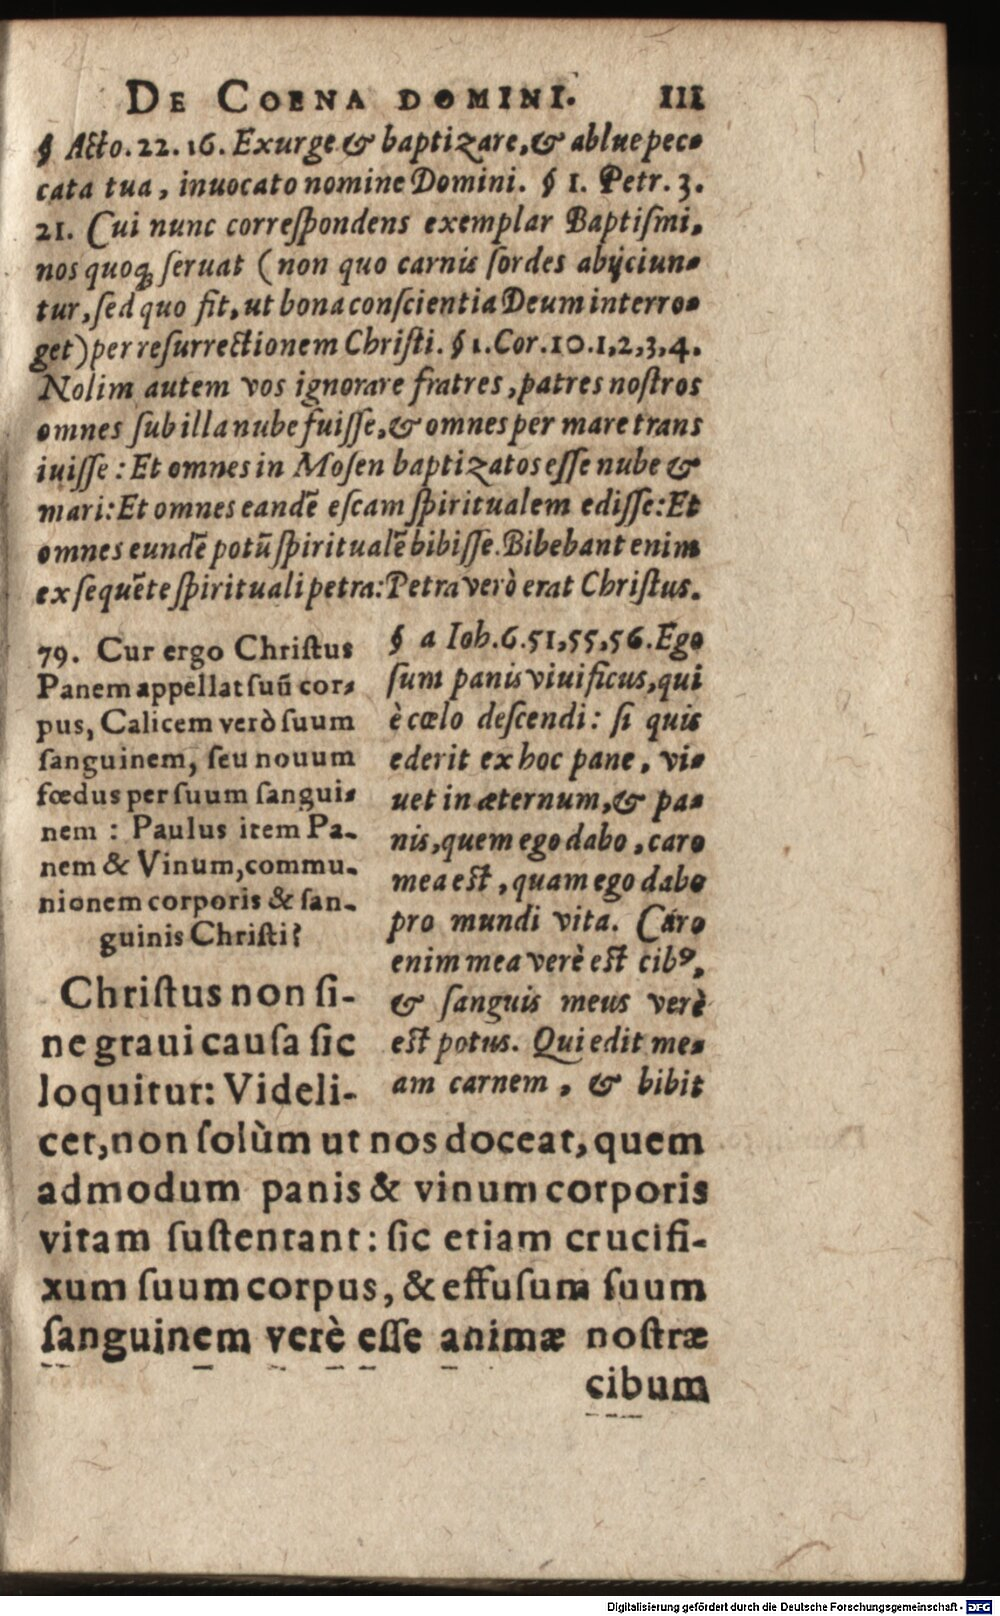 DE COENA DOMINI. 111
§ Acto. 22. 16. Exurge & baptizare, & ablue pec-
cata tua, inuocato nomine Domini. § 1. Petr. 3.
21. Cui nunc correſpondens exemplar Baptiſmi,
nos quoq; ſeruat (non quo carnis ſordes abijciun-
tur, ſed quo fit, ut bona conſcientia Deum interro-
get) per reſurrectionem Chriſti. § 1. Cor. 10. 1, 2, 3, 4.
Nolim autem vos ignorare fratres, patres noſtros
omnes ſub illa nube fuiſſe, & omnes per mare trans
iuiſſe: Et omnes in Moſen baptizatos eſſe nube &
mari: Et omnes eandē eſcam ſpiritualem ediſſe: Et
omnes eundē potū ſpiritualē bibiſſe. Bibebant enim
ex ſequēte ſpirituali petra: Petra verò erat Chriſtus.
79. Cur ergo Chriſtus
Panem appellat ſuū cor-
pus, Calicem verò ſuum
ſanguinem, ſeu nouum
fœdus per ſuum ſangui-
nem: Paulus item Pa-
nem & Vinum, commu-
nionem corporis & ſan-
guinis Chriſti?
§ a Ioh. 6. 51, 55, 56. Ego
ſum panis viuificus, qui
è cœlo deſcendi: ſi quis
ederit ex hoc pane, vi-
uet in æternum, & pa-
nis, quem ego dabo, caro
mea eſt, quam ego dabo
pro mundi vita. Caro
enim mea verè eſt cibꝰ,
& ſanguis meus verè
eſt potus. Qui edit me-
am carnem, & bibit
Chriſtus non ſi-
ne graui cauſa ſic
loquitur: Videli-
cet, non ſolùm ut nos doceat, quem
admodum panis & vinum corporis
vitam ſuſtentant: ſic etiam crucifi-
xum ſuum corpus, & effuſum ſuum
ſanguinem verè eſſe animæ noſtræ
cibum
Digitalisierung gefördert durch die Deutsche Forschungsgemeinschaft - DFG